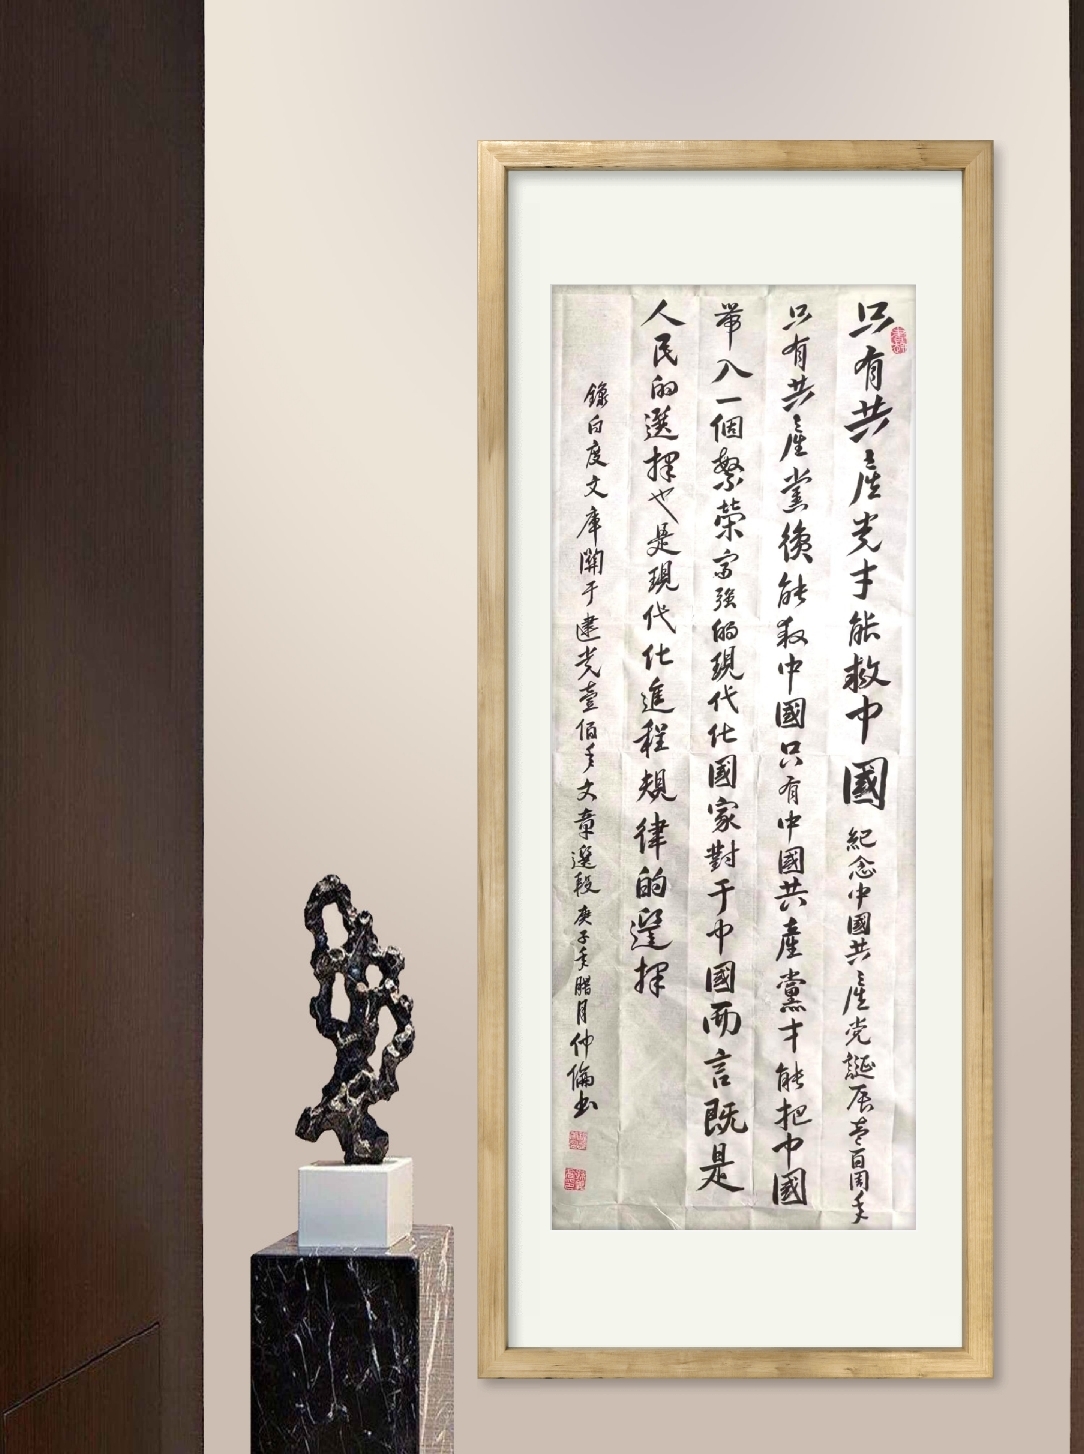 只有共产党才能救中國 紀念中國共产党誕辰壹百周年
只有共產黨後能救中國只有中國共產黨才能把中國
帶入一個繁榮富強的現代化國家對于中國而言既是
人民的選擇也是現代化進程規律的選擇
錄百度文庫關于建党壹佰年文章選段 庚子年腊月仲倫书